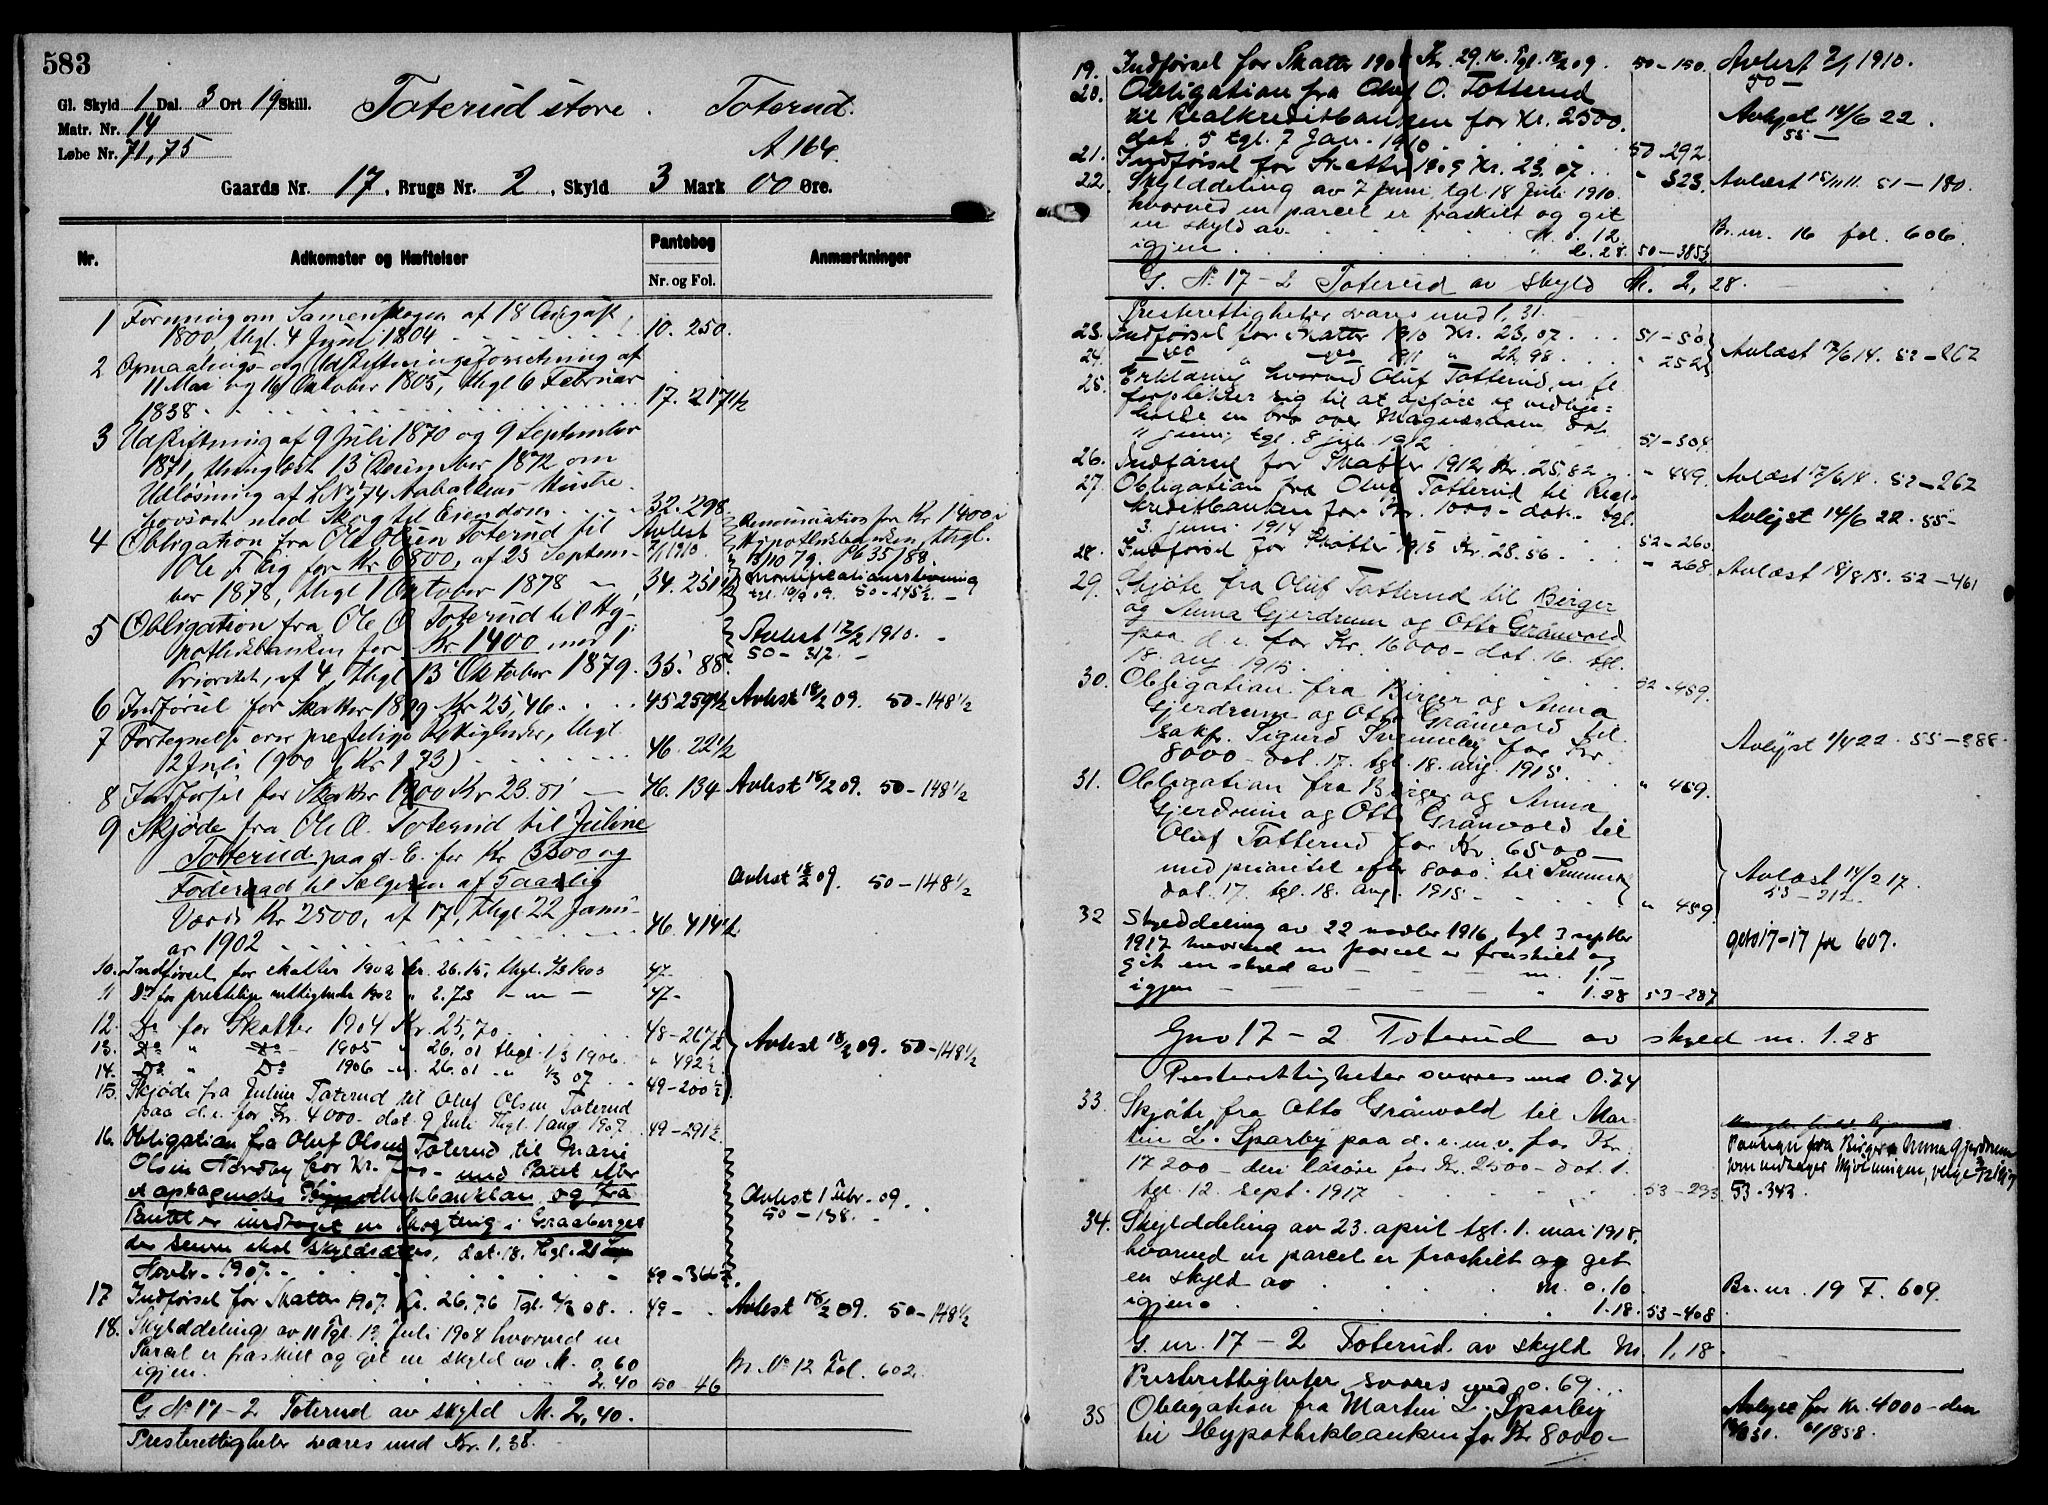 583
Gl. Skyld 1 Dal. 3 Ort 19 Skill.
Matr. Nr. 14
Løbe Nr. 71, 75
Toterud store. Toterud.
A 164
Gaards Nr. 17, Brugs Nr. 2, Skyld 3 Mark 00 Øre.
Nr. Adkomster og Hæftelser Pantebog Nr. og Fol. Anmærkninger
1 Forening om Sameieskogen af 18 August
1800, thgl. 4 Juni 1804 10. 250.
2 Opmaalings- og Udskiftningsforretning af
11 Mai og 16 Oktober 1805, thgl 6 Februar
1838 17. 217 1/2
3 Udskiftning af 9 Juli 1870 og 9 September
1871, thinglæst 13 December 1872 om
Udløsning af LNo 74
med Skog til Eiendom 32. 298.
4 Obligation fra Ole Olsen Toterud til
Ole for Kr 6800, af 23 Septem-
ber 1878, thgl 1 Oktober 1878 34. 251 1/2
Avlest 7/1 1910.
Renunciation for Kr 1400
Hypothekbanken, thgl.
13/10 79. Pb 35/88.
50-245 1/2
5 Obligation fra Ole O. Toterud til Hy-
pothekbanken for Kr 1400 med 1
Prioritet, af 4, thgl 13 Oktober 1879. 35. 88. Avlest 12/2 1910.
50-317.
6 Indførsel for Skatter 1899 Kr 25,46 45 259 1/2 Avlest 18/2 09. 50-148 1/2
7 Fortegnelse over prestelige Rettigheder, thgl.
12 Juli 1900 (Kr 1.73) 46. 22 1/2
8 Indførsel for Skatter 1900 Kr 23.01 46. 134 Avlest 18/2 09. 50-148 1/2
9 Skjøde fra Ole O. Toterud til Juline
Toterud paa d. E. for Kr 3500 og
Føderaad til Sælgeren af 5aarlig
Værdi Kr 2500, af 17, thgl 22 Janu-
ar 1902 46. 414 1/2
Avlest 18/2 09. 50-148 1/2
10. Indførsel for skatter 1902 Kr. 26.15, thgl. 1903 47-
11 Do for prestelige rettigheder 1902 " 2.73 47-
12. Do for Skatter 1904 Kr. 25,70 48-267 1/2
13. Do " Do 1905 " 26.01 thgl. 1/3 1906 " 492 1/2
14. Do " Do 1906 " 26.01 " 1/3 07 49-200 1/2
Avlest 18/2 09. 50-148 1/2
15. Skjøde fra Juline Toterud til Oluf Olsen Toterud
paa d. e. for Kr. 4000- dat. 9 Juli thgl. 1 aug. 1907. 49-291 1/2
16. Obligation fra Oluf Olsen Toterud til Marie
Olsen Nordby for Kr. med Panteret efter
et optagendes Hypothekbanklaan og fra
Pantet er undtaget en Skogteig i Graaberget
der senere skal skyldsættes, dat. 18. thgl. 21
Novbr. 1907. 49-366 1/2
Avlest 1 Febr. 09.
50-138.
17 Indførsel for Skatter 1907. Kr. 26.76 Tgl. 08. 49- Avlest 18/2 09. 50-148 1/2
18. Skylddeling av 11 Tgl. 13 Juli 1908 hvorved en
Parcel er fraskilt og git en skyld av M. 0.60
igjen. 2.40 50-46 Br. No 12 Fol. 602.
G No 17-2 Toterud av skyld M. 2,40.
Presterettigheter svares med Kr. 1,38.
19. Indførsel for Skatter 1908 Kr. 29.16. Tgl. 18/2 09. 50-150. Avlest 7/1 1910.
50-
20. Obligation fra Oluf O. Totterud
til Realkreditbanken for Kr. 2500.
dat. 5 tgl. 7 Jan. 1910 50-292. Avlyst 14/6 22.
55-
21. Indførsel for Skatter 1909 Kr. 23.07 " 323. Avlæst 15/11 11. 51-180.
22. Skylddeling av 7 Juni tgl 18 Juli 1910
hvorved en parcel er fraskilt og git
en skyld av M. 0.12
igjen 2.28 50-385 1/2 Br. nr. 16 fol. 606.
G. No 17-2 Toterud av skyld M. 2,28.
Presterettigheter svares med 1,31.
23. Indførsel for Skatter 1910 Kr. 23,07 51-50
24. do " do 1911 " 22,98 " 252 Avlæst 7/6 14. 52-262
25. Erklæring hvorved Oluf Totterud m. fl.
forplikter sig til at opføre og vedlige-
holde en bro over dat.
11 juni, tgl. 8 juli 1912 51-304.
26. Indførsel for Skatter 1912 Kr. 25,82 " 449. Avlæst 7/6 14. 52-262
27. Obligation fra Oluf Totterud til Real-
kreditbanken for Kr. 1000- dat. tgl.
3 juni 1914 52-260. Avlyst 14/6 22. 55-
28. Indførsel for Skatter 1913 Kr. 28.56 " 268. Avlæst 18/8 15. 52-461
29. Skjøte fra Oluf Totterud til Birger
og Anna Gjerdrum og Otto Grønvold
paa d. e. for Kr. 16000- dat. 16. tgl.
18. aug. 1915.
30. Obligation fra Birger og Anna 52-459.
Gjerdrum og Otto Grønvold til
sakf. Sigurd for Kr.
8000- dat. 17. tgl. 18. aug. 1915. " 459. Avlyst 1/4 22. 55-388.
31. Obligation fra Birger og Anna
Gjerdrum og Otto Grønvold til
Oluf Totterud for Kr. 6500-
med prioritet efter 8000. til
dat. 17. tgl. 18. aug. 1915 " 459 Avlæst 14/2 17.
53-212.
32 Skylddeling av 22 novbr 1916, tgl 3 septbr
1917 hvorved en parcel er fraskilt og
git en skyld av m. 1.-
igjen " 1.28 53-287 gno 17-17 fol 607.
Gno 17-2 Toterud av skyld m. 1.28
Presterettigheter svares med 0.74
33. Skjøte fra Otto Grønvold til Mar-
tin L. Sparby paa d. e. m. v. for Kr.
17200- den løsøre for Kr. 2500- dat. 1.
tgl. 12. sept. 1917 53-293
fra Birger & Anna Gjerdrum
som
53-343.
34. Skylddeling av 23. april tgl. 1. mai 1918,
hvorved en parcel er fraskilt og get
en skyld av M. 0.10
igjen. 1.18. 53-408 Br. nr. 19 F. 609.
G. nr. 17-2 Toterud av skyld M 1,18.
Presterettigheter svares med 0.69.
35 Obligation fra Martin L. Sparby
til Hypothekbanken for Kr 8000-
Avlyst for Kr. 4000- den
31. 61/858.